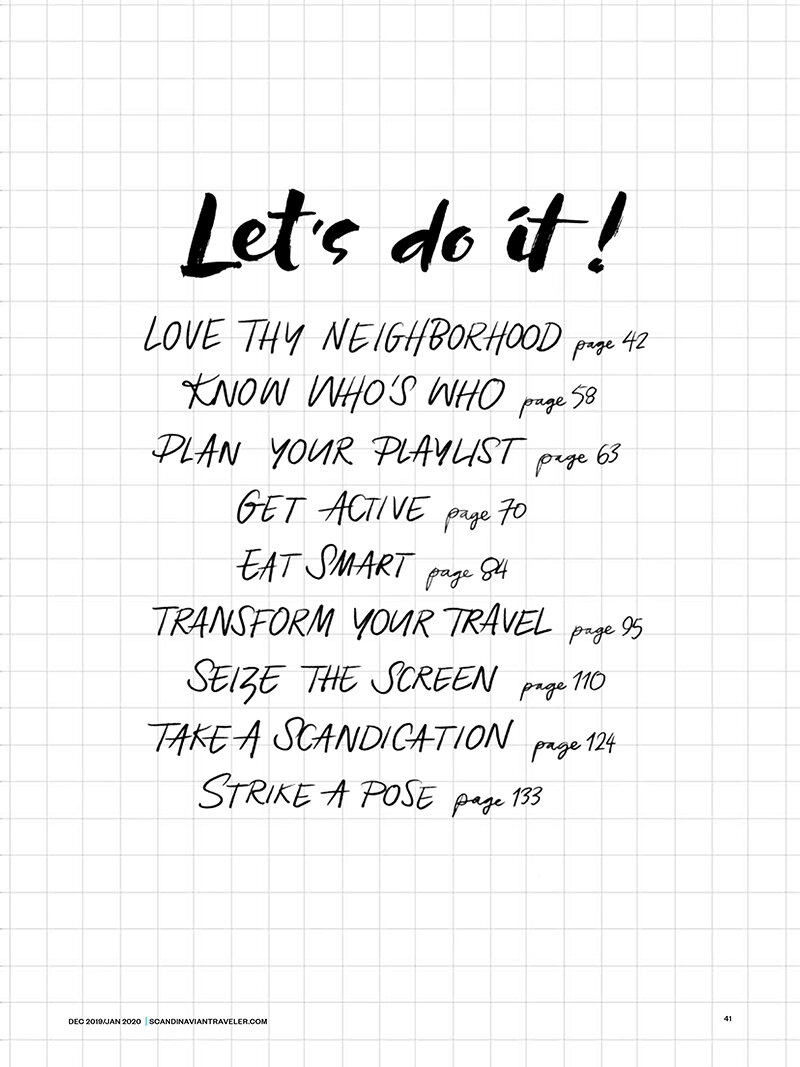 Let's do it!
LOVE THY NEIGHBORHOOD page 42
KNOW WHO'S WHO page 58
PLAN YOUR PLAYLIST page 63
GET ACTIVE page 70
EAT SMART page 84
TRANSFORM YOUR TRAVEL page 95
SEIZE THE SCREEN page 110
TAKE A SCANDICATION page 124
STRIKE A POSE page 133
DEC 2019/JAN 2020 | SCANDINAVIANTRAVELER.COM
41